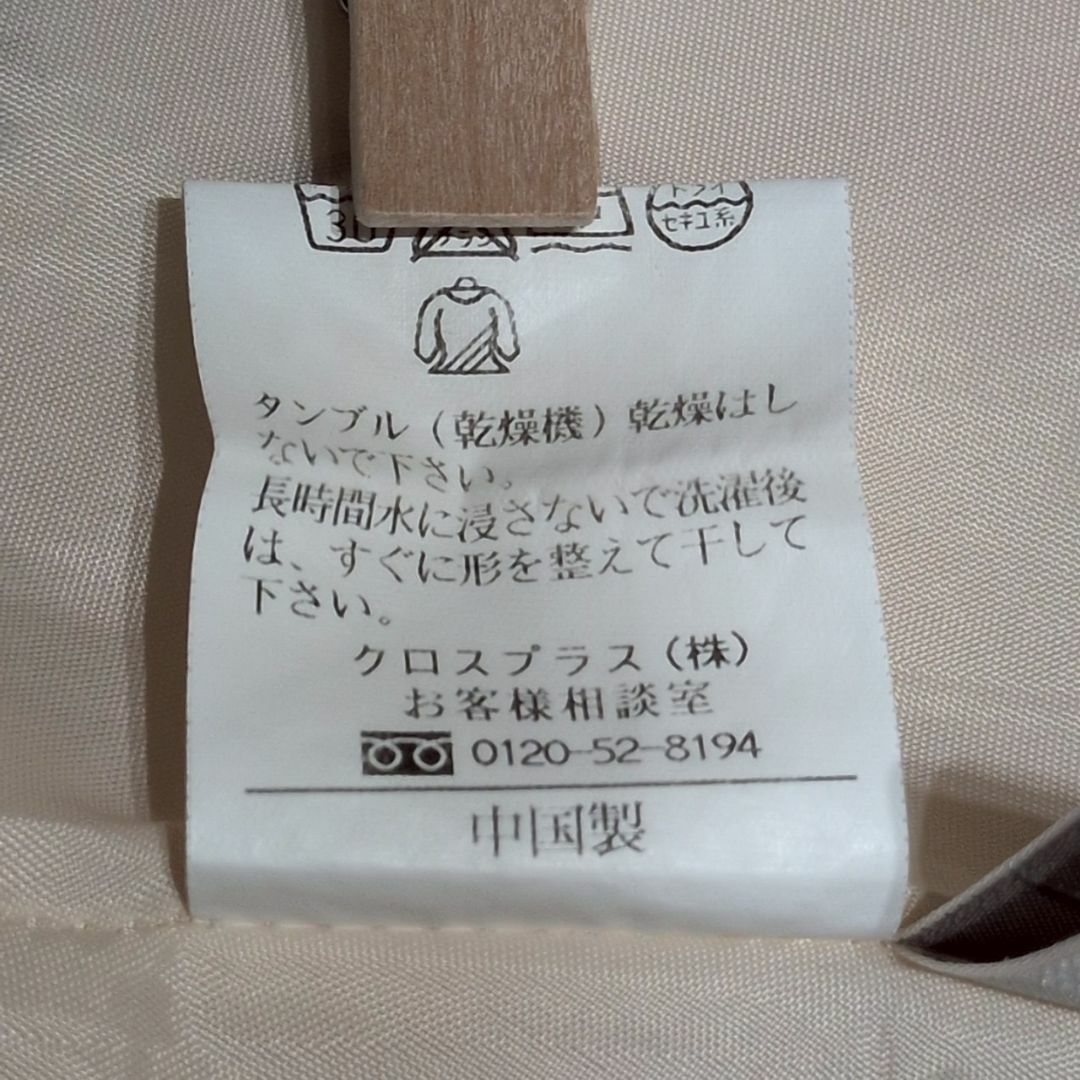 30
ドライ
セキユ系
タンブル（乾燥機）乾燥はし
ないで下さい。
長時間水に浸さないで洗濯後
は、すぐに形を整えて干して
下さい。
クロスプラス（株）
お客様相談室
0120-52-8194
中国製